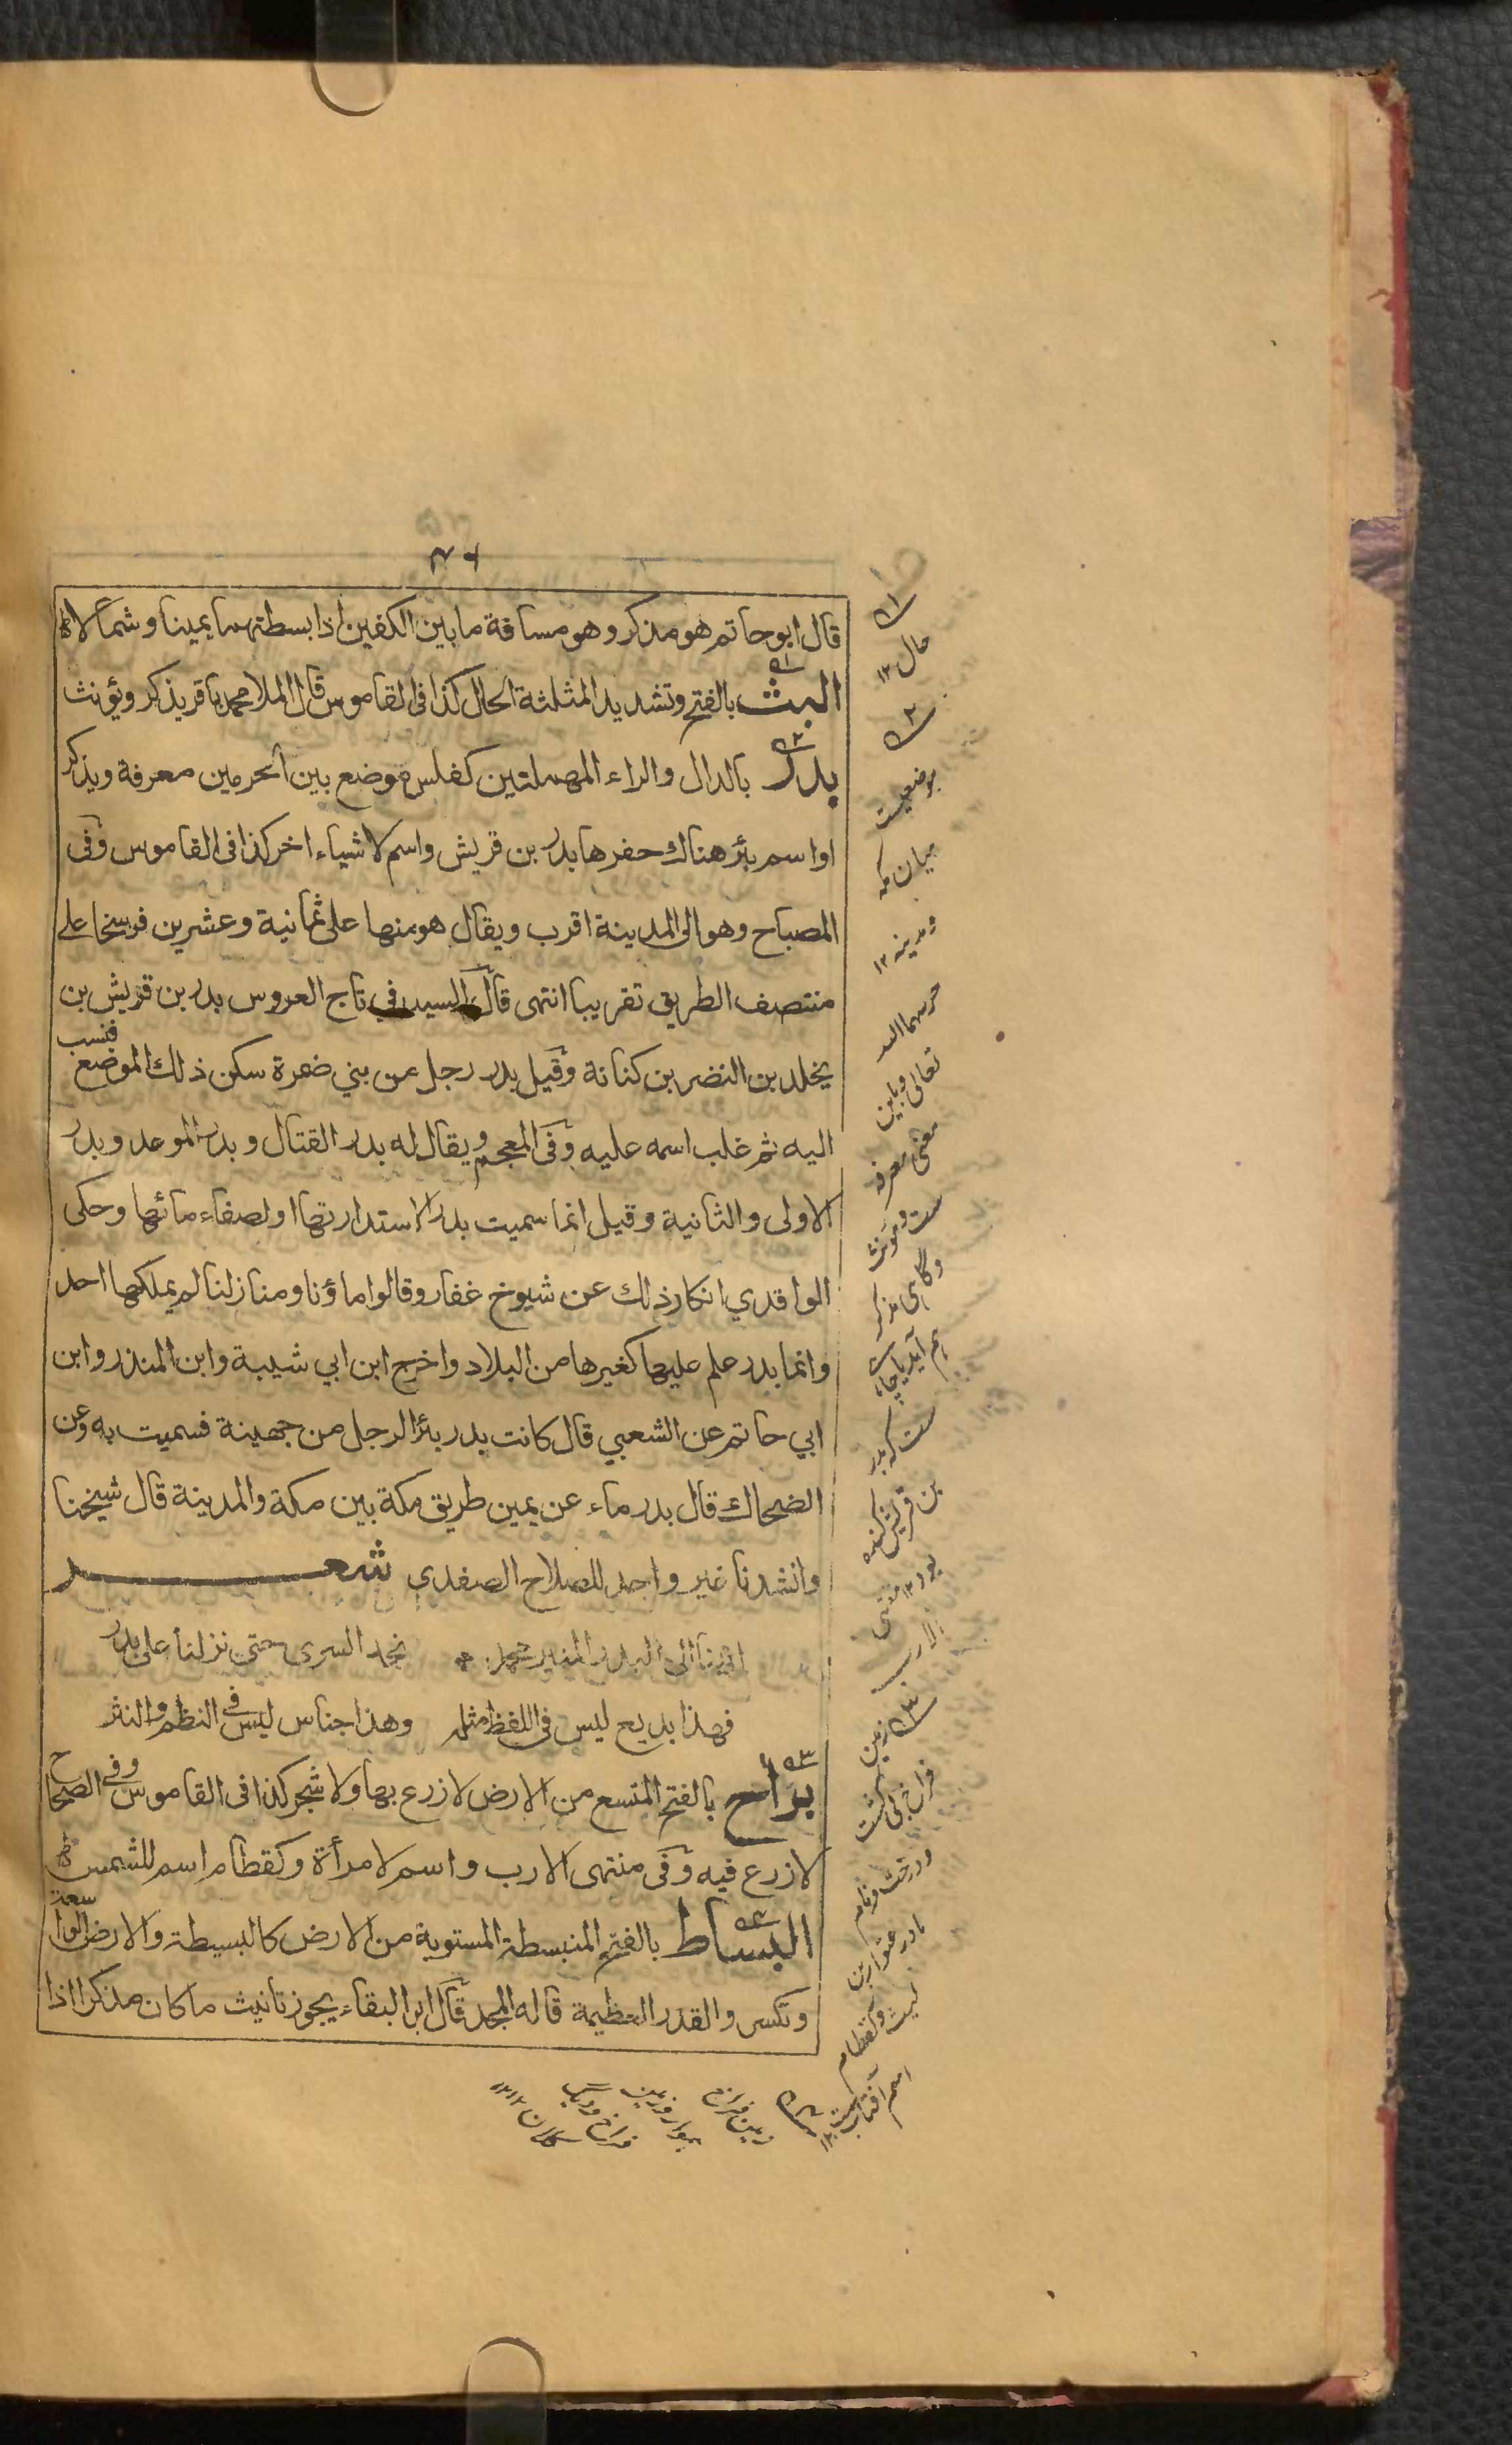 ٧٦
قال ابوحاتم هو مذكر وهو مسافة ما بين الكفين اذا بسطتهما يمينا وشمالا
البث بالفتح وتشديد المثلثة الحال كذا فى القاموس قال الملا محمد باقر يذكر ويؤنث
بدر بالدال والراء المهملتين كفلس موضع بين الحرمين معرفة ويذكر
او اسم بئر هناك حفرها بدر بن قريش واسم لاشياء اخر كذا فى القاموس وفى
المصباح وهو الى المدينة اقرب ويقال هو منها على ثمانية وعشرين فرسخا على
منتصف الطريق تقريبا انتهى قال السيد في تاج العروس بدر بن قريش بن
يخلد بن النضر بن كنانة وقيل بدر رجل من بني ضمرة سكن ذلك الموضع فنسب
اليه ثم غلب اسمه عليه وفى المعجم ويقال له بدر القتال وبدر الموعد وبدر
الاولى والثانية وقيل انما سميت بدرا لاستدارتها او لصفاء مائها وحكى
الواقدي انكار ذلك عن شيوخ غفار وقالوا ماؤنا ومنازلنا لم يملكها احد
وانما بدر علم عليها كغيرها من البلاد واخرج ابن ابي شيبة وابن المنذر وابن
ابي حاتم عن الشعبي قال كانت بدر بئرا لرجل من جهينة فسميت به وعن
الضحاك قال بدر ماء عن يمين طريق مكة بين مكة والمدينة قال شيخنا
وانشدنا غير واحد للصلاح الصفدى شعر
اتينا الى البدر المنير محمد * نجد السرى حتى نزلنا على بدر
فهذا بديع ليس فى اللفظ مثله وهذا جناس ليس فى النظم والنثر
براح بالفتح المتسع من الارض لا زرع بها ولا شجر كذا فى القاموس وفى الصحاح
لا زرع فيه وفى منتهى الارب واسم لامرأة وكقطام اسم للشمس
البساط بالفتح المنبسطة المستوية من الارض كالبسيطة والارض الواسعة
وتكسر والقدر العظيمة قاله المجد قال ابو البقاء يجوز تانيث ما كان مذكرا اذا
١
حال ١٢
٢
موضعيست
ميان مكه
ومدينه ١٢
حرسهما الله
تعالى وباين
معنى معرفه
ست ومونث
وگاہى مذكر
ہم آيد يا چاہ
ست كه بدر
بن قريش كنده
بود ١٢ منتهى
الارب
٣ زمين
فراخ بى كشت
ودرخت ونام
مادر عتوار بن
ليث وكقطام
اسم آفتاب ست ١٢
٤
زمين فراخ
ہموار وزمين
فراخ وديگ
كلان ١٢